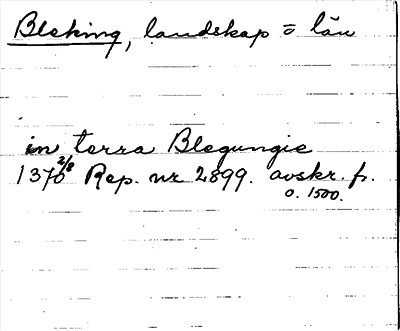 Bleking, landskap = län
in terra Blegungie
1370 2/8 Rep. nr 2899. avskr. fr.
o. 1500.